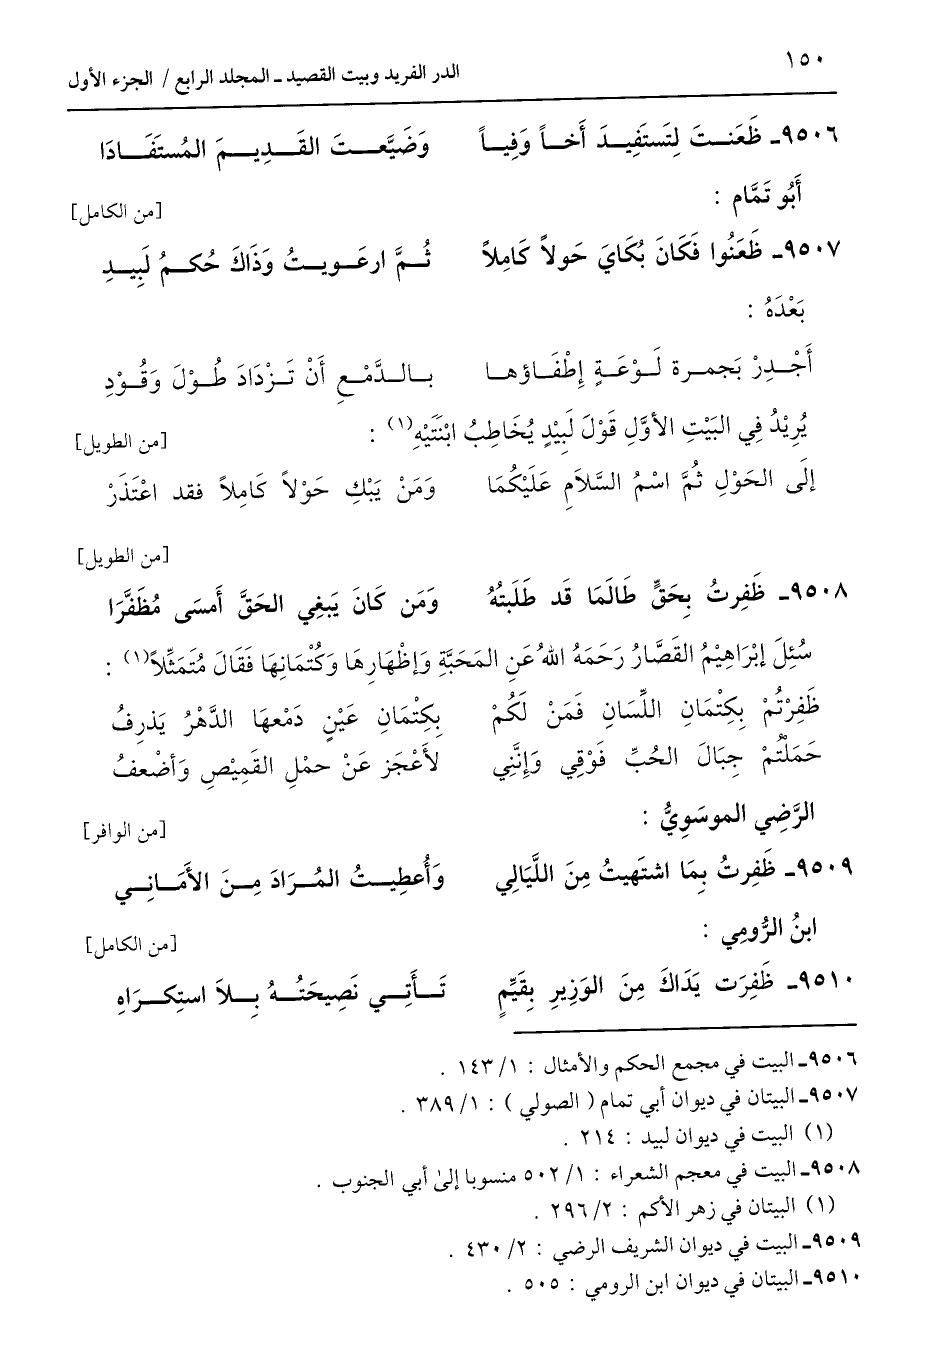 ١٥٠
الدر الفريد وبيت القصيد ـ المجلد الرابع / الجزء الأول
٩٥٠٦ـ ظَعَنتَ لِتَستَفِيدَ أَخاً وَفِياً وَضَيَّعتَ القَدِيمَ المُستَفَادَا
أَبُو تَمَّام :
[من الكامل]
٩٥٠٧ـ ظَعَنُوا فَكَانَ بُكَايَ حَولاً كَامِلاً ثُمَّ ارعَويتُ وَذَاكَ حُكمُ لَبِيدِ
بَعْدَهُ :
أَجْدِرْ بَجمرة لَوْعَةٍ إِطْفَاؤُها بالدَّمْعِ أَنْ تَزْدَادَ طُوْلَ وَقُوْدِ
يُرِيْدُ فِي البَيْتِ الأَوَّلِ قَوْلَ لَبِيْدٍ يُخَاطِبُ ابْنَتَيْهِ(١) :
[من الطويل]
إلَى الحَوْلِ ثُمَّ اسْمُ السَّلاَمِ عَلَيْكُمَا وَمَنْ يَبْكِ حَوْلاً كَامِلاً فقد اعْتَذَرْ
[من الطويل]
٩٥٠٨ـ ظَفِرتُ بِحَقٍّ طَالَمَا قَد طَلَبتُهُ وَمَن كَانَ يَبغِي الحَقَّ أَمسَى مُظَفَّرَا
سُئِلَ إبْرَاهِيْمُ القَصَّارُ رَحَمَهُ اللهُ عَنِ المَحَبَّةِ وَإظْهَارِهَا وَكُتْمَانِهَا فَقَالَ مُتَمَثِّلاً(١) :
ظَفِرْتُمْ بِكِتْمَانِ اللِّسَانِ فَمَنْ لَكُمْ بِكِتْمَانِ عَيْنٍ دَمْعهَا الدَّهْرُ يَذرِفُ
حَمَلْتُمْ جِبَالَ الحُبِّ فَوْقِي وَإنَّنِي لأَعْجَز عَنْ حمْلِ القَمِيْصِ وَأضْعفُ
الرَّضِي الموسَوِيُّ :
[من الوافر]
٩٥٠٩ـ ظَفِرتُ بِمَا اشتَهيتُ مِنَ اللَّيَالِي وَأُعطِيتُ المُرَادَ مِنَ الأَمَانِي
ابنُ الرُّومِي :
[من الكامل]
٩٥١٠ـ ظَفِرَت يَدَاكَ مِنَ الوَزِيرِ بِقَيِّمٍ تَأَتِي نَصِيحَتُهُ بِلاَ استِكرَاهِ
٩٥٠٦ـ البيت في مجمع الحكم والأمثال : ١/ ١٤٣ .
٩٥٠٧ـ البيتان في ديوان أبي تمام ( الصولي ) : ١/ ٣٨٩ .
(١) البيت في ديوان لبيد : ٢١٤ .
٩٥٠٨ـ البيت في معجم الشعراء : ١/ ٥٠٢ منسوبا إلى أبي الجنوب .
(١) البيتان في زهر الأكم : ٢/ ٢٩٦ .
٩٥٠٩ـ البيت في ديوان الشريف الرضي : ٢/ ٤٣٠ .
٩٥١٠ـ البيتان في ديوان ابن الرومي : ٥٠٥ .